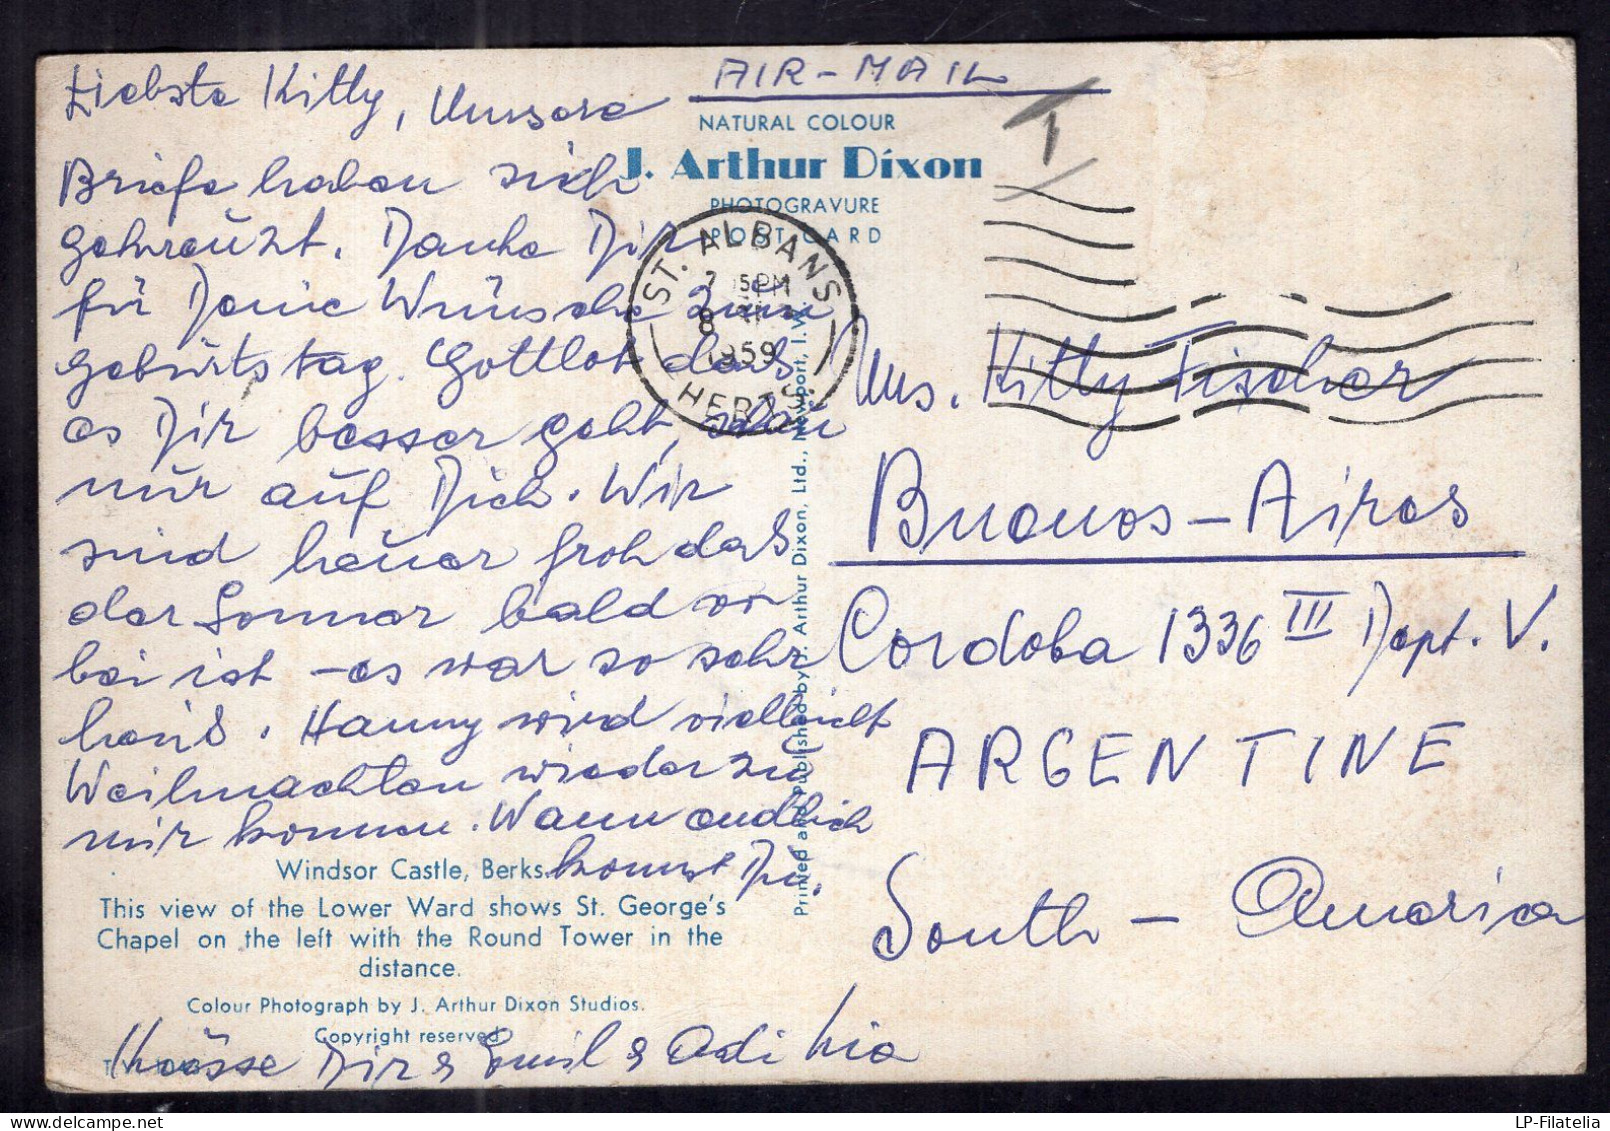 Liebste Kitty, Unsere
Briefe haben sich
gekreuzt. Danke Dir
für Deine Wünsche zum
Geburtstag. Gottlob dass
es Dir besser geht, schau
nur auf Dich. Wir
sind heuer froh daß
der Sommer bald vor
bei ist – es war so sehr
heiß. Hanny wird vielleicht
Weihnachten wieder zu
mir kommen. Wann endlich
kommst Du.
Windsor Castle, Berks.
This view of the Lower Ward shows St. George's
Chapel on the left with the Round Tower in the
distance.
Colour Photograph by J. Arthur Dixon Studios.
Copyright reserved
Küsse Dir & Emil & Adi
AIR-MAIL
T
NATURAL COLOUR
J. Arthur Dixon
PHOTOGRAVURE
POST CARD
ST. ALBANS
PM
8
1959
HERTS.
Printed and published by J. Arthur Dixon, Ltd., Newport, I.W.
Mrs. Kitty Fischer
Buenos-Aires
Cordoba 1336 III Dept. V.
ARGENTINE
South – America
LP-Filatelia